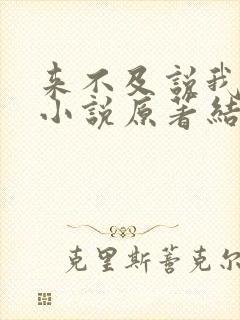 来不及説我
小説原著結
克里斯蒼克尔